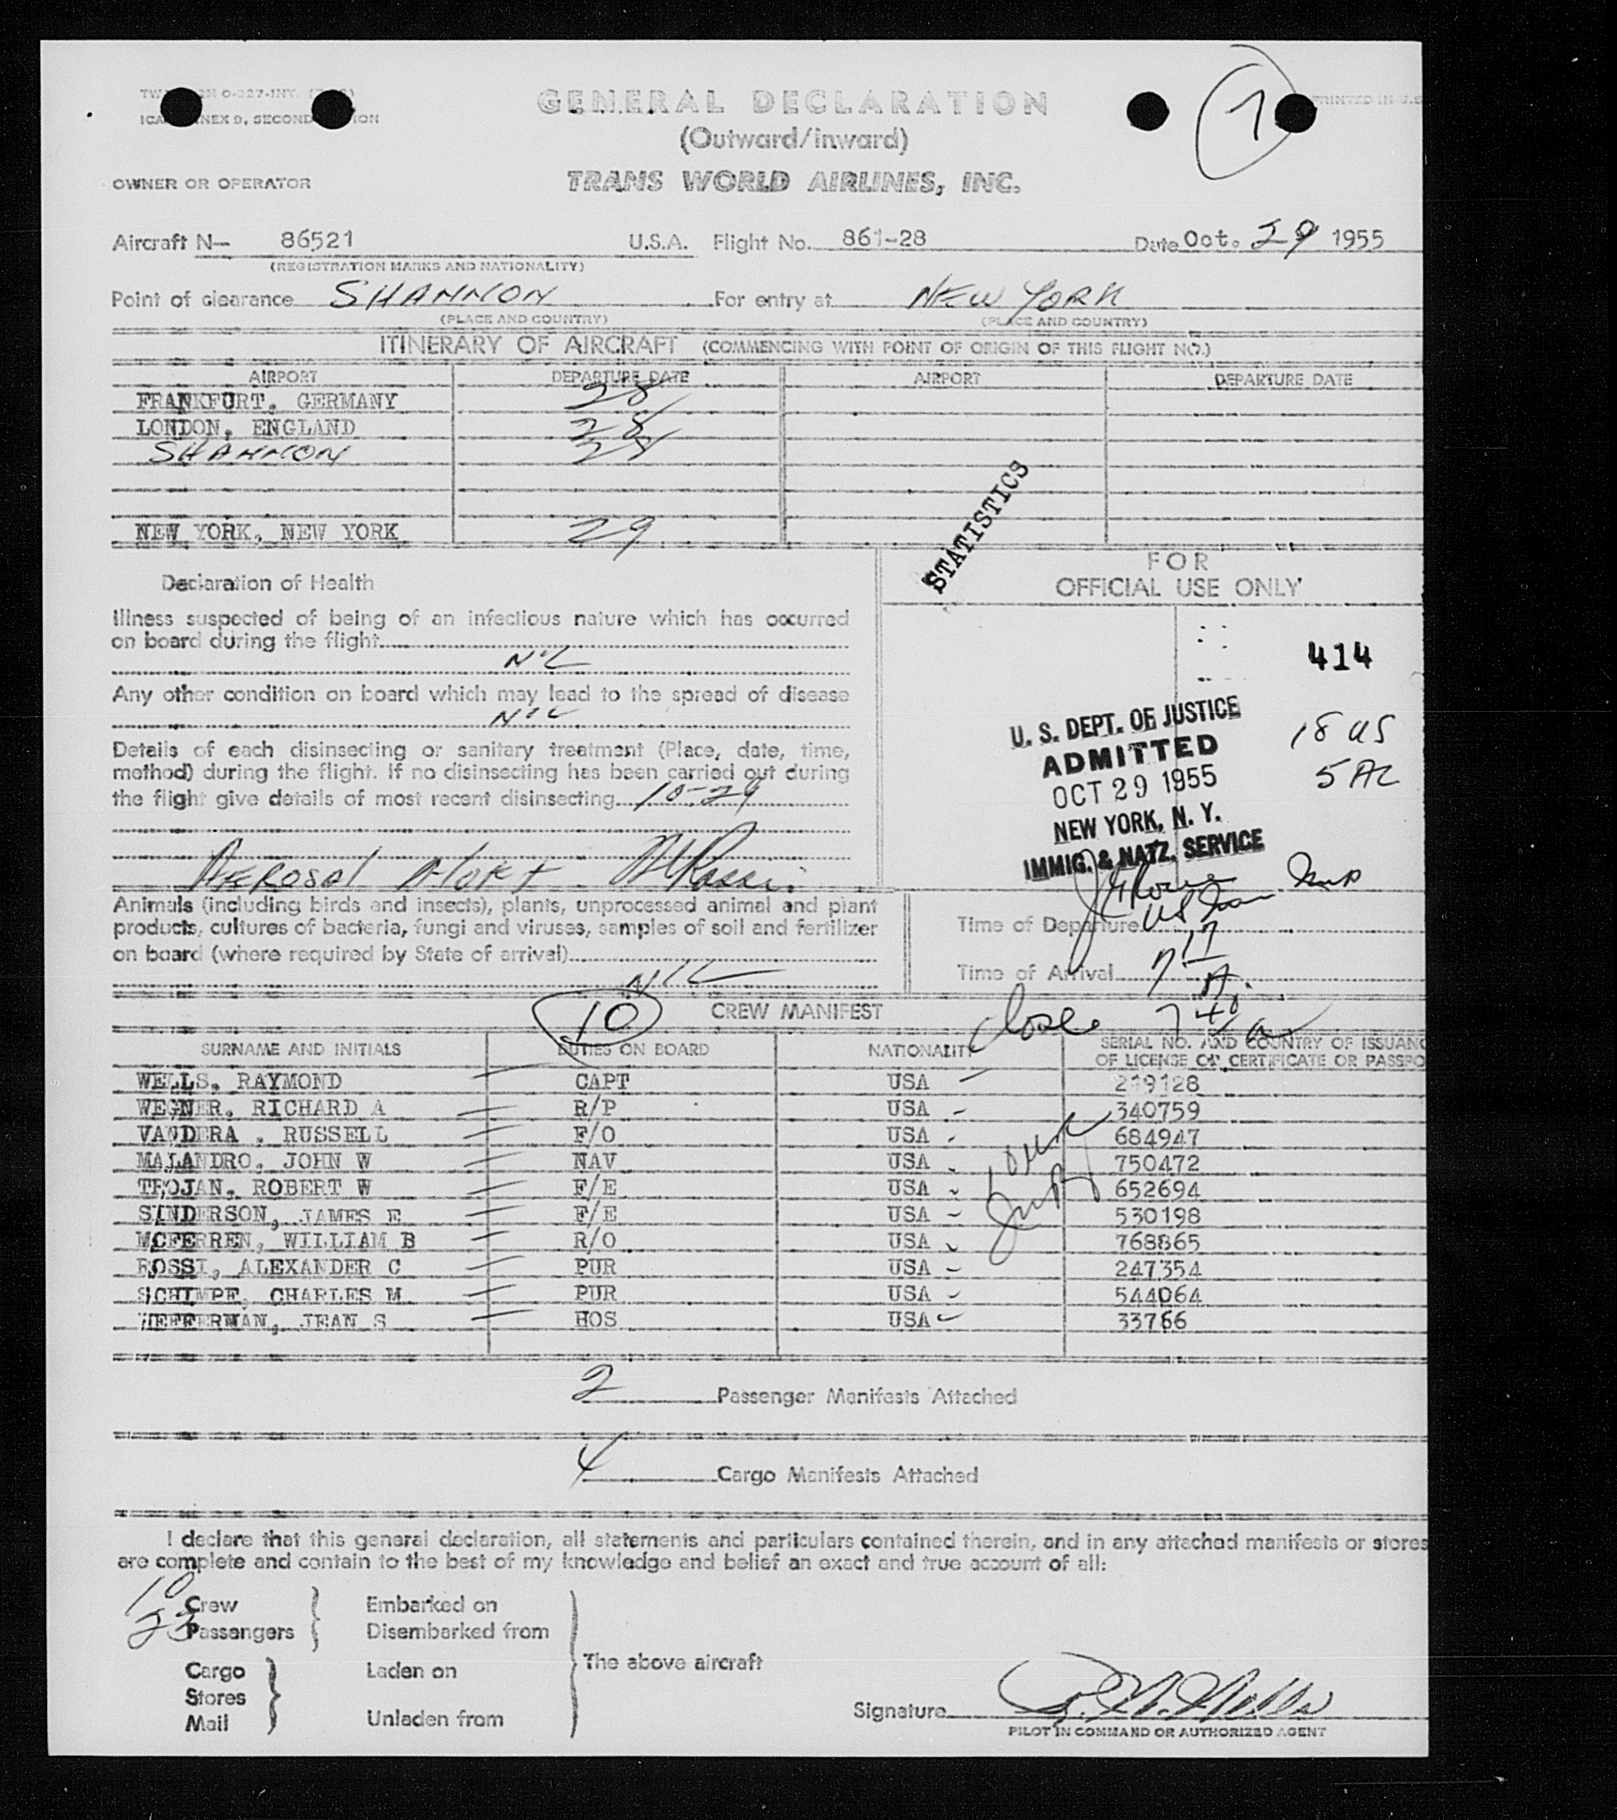 GENERAL DECLARATION
(Outward/inward)
OWNER OR OPERATOR
TRANS WORLD AIRLINES, INC.
7
PRINTED IN U.S
Aircraft N— 86521 U.S.A. Flight No. 861-28 Date Oct. 29 1955
(REGISTRATION MARKS AND NATIONALITY)
Point of clearance SHANNON For entry at NEW YORK
(PLACE AND COUNTRY) (PLACE AND COUNTRY)
ITINERARY OF AIRCRAFT (COMMENCING WITH POINT OF ORIGIN OF THIS FLIGHT NO.)
AIRPORT DEPARTURE DATE AIRPORT DEPARTURE DATE
FRANKFURT, GERMANY 28
LONDON, ENGLAND 28
SHANNON 28
NEW YORK, NEW YORK 29
STATISTICS
Declaration of Health
Illness suspected of being of an infectious nature which has occurred
on board during the flight
NIL
Any other condition on board which may lead to the spread of disease
NIL
Details of each disinsecting or sanitary treatment (Place, date, time,
method) during the flight. If no disinsecting has been carried out during
the flight give details of most recent disinsecting 10-29
AEROSOL ALOFT
Animals (including birds and insects), plants, unprocessed animal and plant
products, cultures of bacteria, fungi and viruses, samples of soil and fertilizer
on board (where required by State of arrival)
NIL
FOR
OFFICIAL USE ONLY
414
18 US
5 AL
U. S. DEPT. OF JUSTICE
ADMITTED
OCT 29 1955
NEW YORK, N. Y.
IMMIG. & NATZ. SERVICE
Time of Departure
Time of Arrival 7 17 A.
Close 7 40 a
10 CREW MANIFEST
SURNAME AND INITIALS DUTIES ON BOARD NATIONALITY SERIAL NO. AND COUNTRY OF ISSUANC
OF LICENSE OR CERTIFICATE OR PASSPO
WELLS, RAYMOND CAPT USA 219128
WEGNER, RICHARD A R/P USA 340759
VANDERA , RUSSELL F/O USA 684947
MALANDRO, JOHN W NAV USA 750472
TROJAN, ROBERT W F/E USA 652694
SANDERSON, JAMES E F/E USA 530198
MCFERREN, WILLIAM B R/O USA 768865
ROSSI, ALEXANDER C PUR USA 247354
SCHIMPF, CHARLES M PUR USA 544064
HEFFERMAN, JEAN S HOS USA 33766
2 Passenger Manifests Attached
4 Cargo Manifests Attached
I declare that this general declaration, all statements and particulars contained therein, and in any attached manifests or stores
are complete and contain to the best of my knowledge and belief an exact and true account of all:
10 Crew Embarked on
23 Passengers Disembarked from
The above aircraft
Cargo Laden on
Stores
Mail Unladen from
Signature R. N. Wells
PILOT IN COMMAND OR AUTHORIZED AGENT